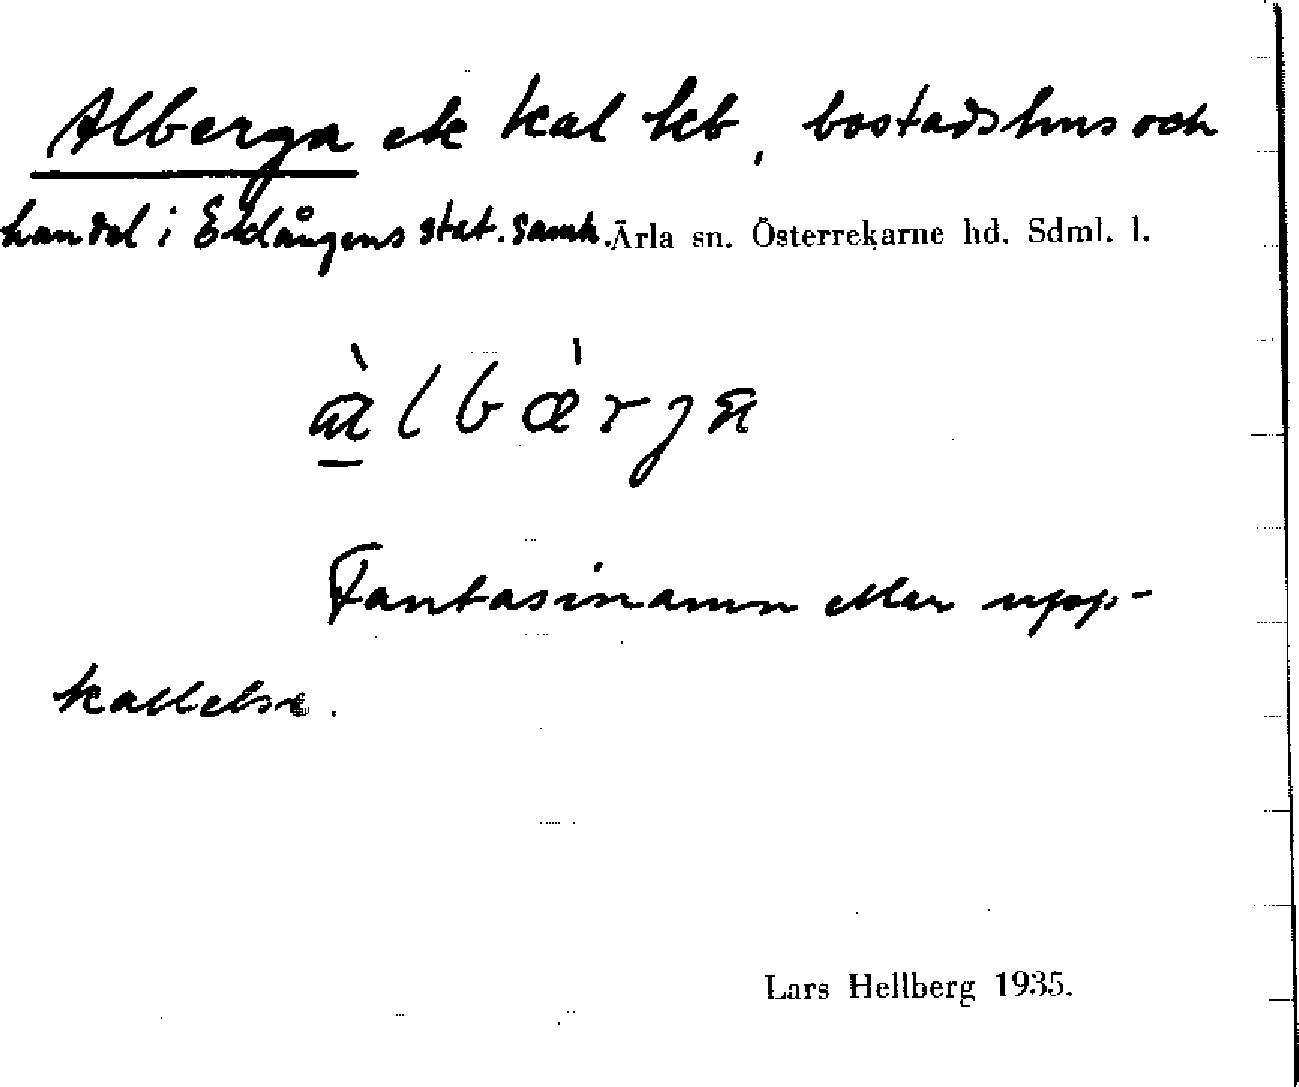 Alberga ek kal kb, bostadshus och
handel i Eklångens stat. samh. Ärla sn. Österrekarne hd. Sdml. l.
àlbǽrja
Fantasinamn eller upp-
kallelse.
Lars Hellberg 1935.